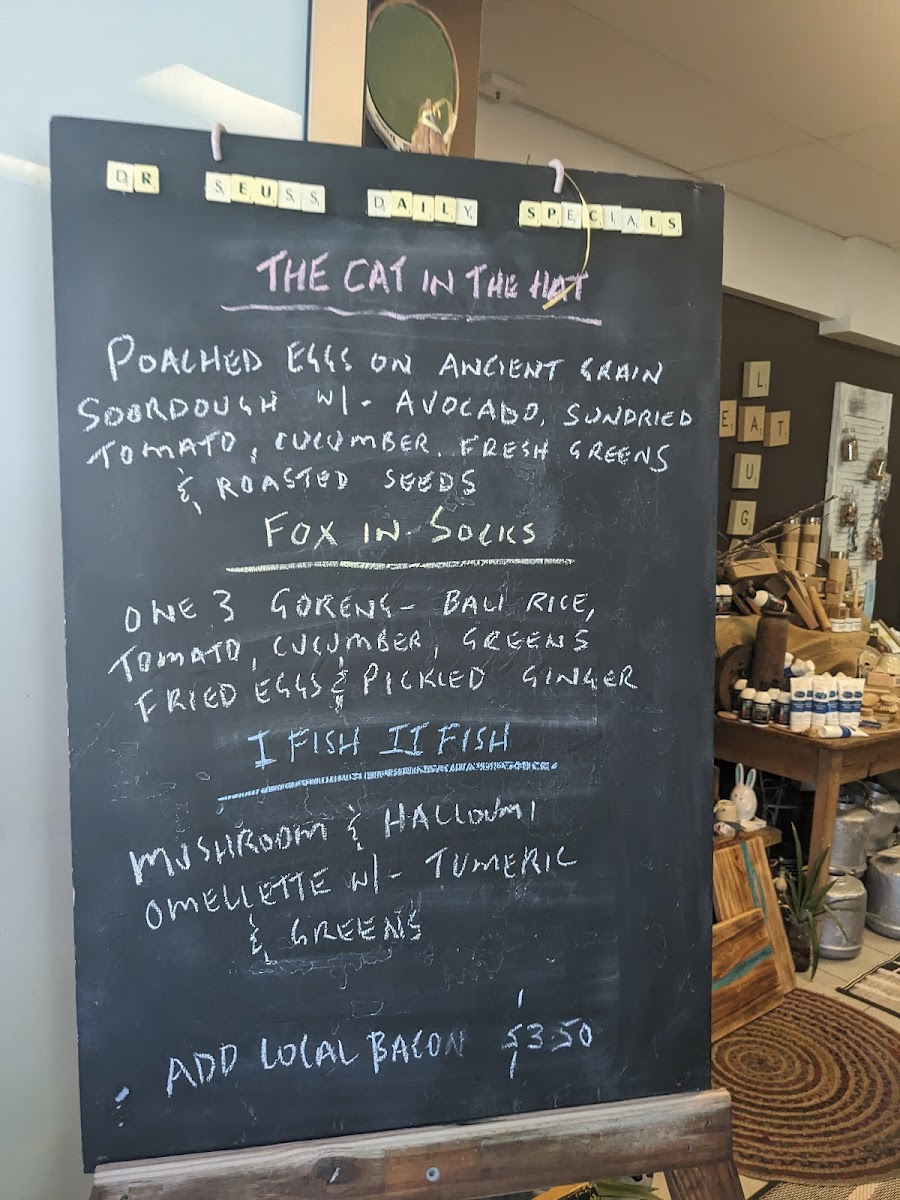 DR SEUSS DAILY SPECIALS
THE CAT IN THE HAT
POACHED EGGS ON ANCIENT GRAIN
SOURDOUGH W/- AVOCADO, SUNDRIED
TOMATO, CUCUMBER, FRESH GREENS
& ROASTED SEEDS
FOX IN SOCKS
ONE 3 GORENG- BALI RICE,
TOMATO, CUCUMBER, GREENS
FRIED EGGS & PICKLED GINGER
I FISH II FISH
MUSHROOM & HALLOUMI
OMELLETTE W/- TUMERIC
& GREENS
ADD LOCAL BACON $3.50
L
EAT
U
G